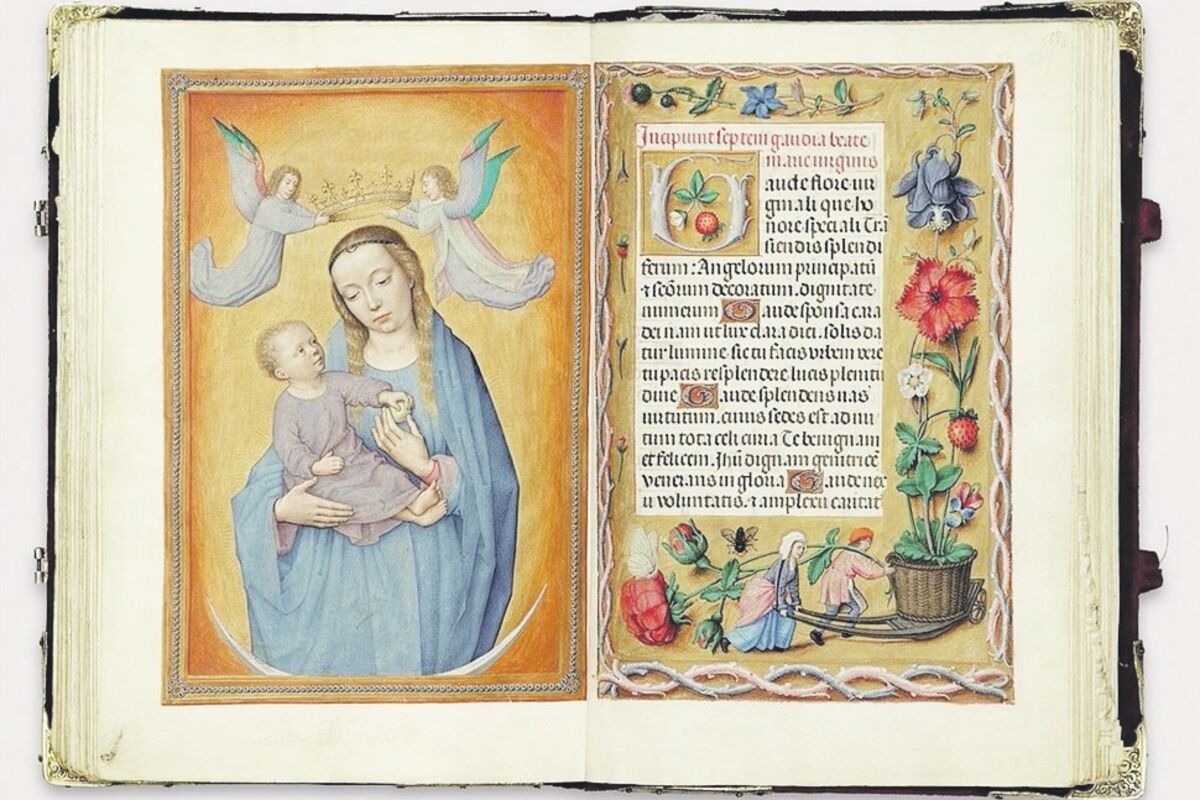 Incipiunt septem gaudia beate
marie virginis
Gaude flore vir
ginali que ho
nore speciali Trā
sciendis splendi
ferum: Angelorum principatū
⁊ scōrum decoratum. dignitate
numerum Gaude sponsa cara
dei nam ut lux clara diei. solis da
tur lumine. sic tu facis orbem vere
tu pacis resplendere. lucis plenitu
dine Gaude splendens vas
virtutum. cuius sedes est ad nu
tum tota celi curia Te benignam
et felicem. Jhū dignam genitricē
venerans in gloria Gaude nex
u voluntatis. ⁊ amplexu caritat